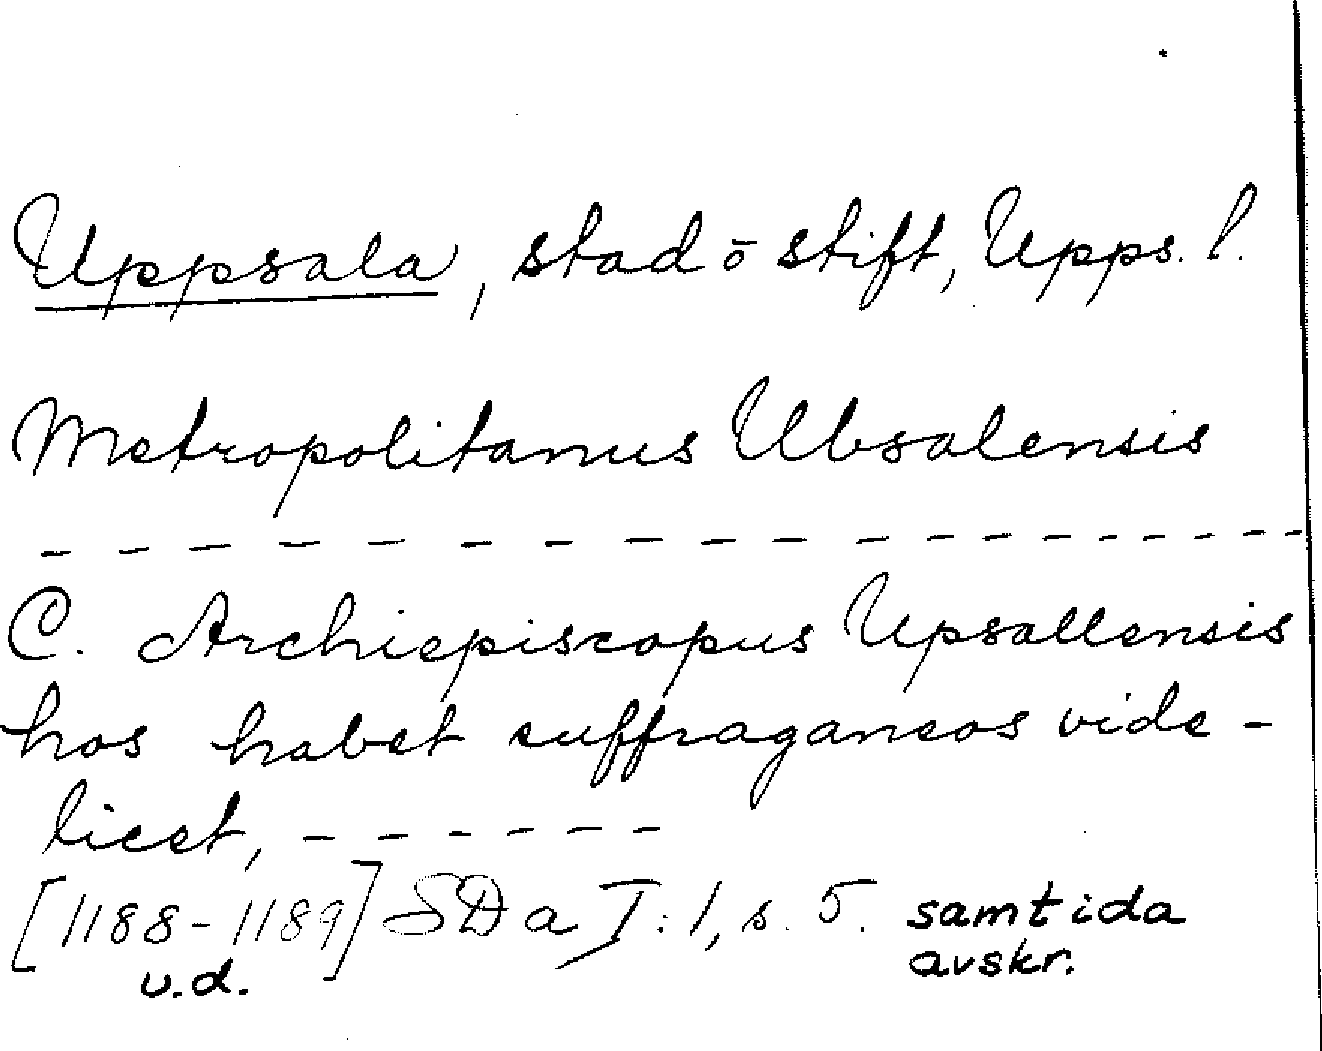 Uppsala, stad o stift, Upps. l.
Metropolitanus Ubsalensis
– – – – – – – – – – – – – – – – –
C. Archiepiscopus Upsallensis
hos habet suffraganeos vide-
licet, – – – – – –
[1188-1189] SDa I: 1, s. 5. samtida
u.d. avskr.